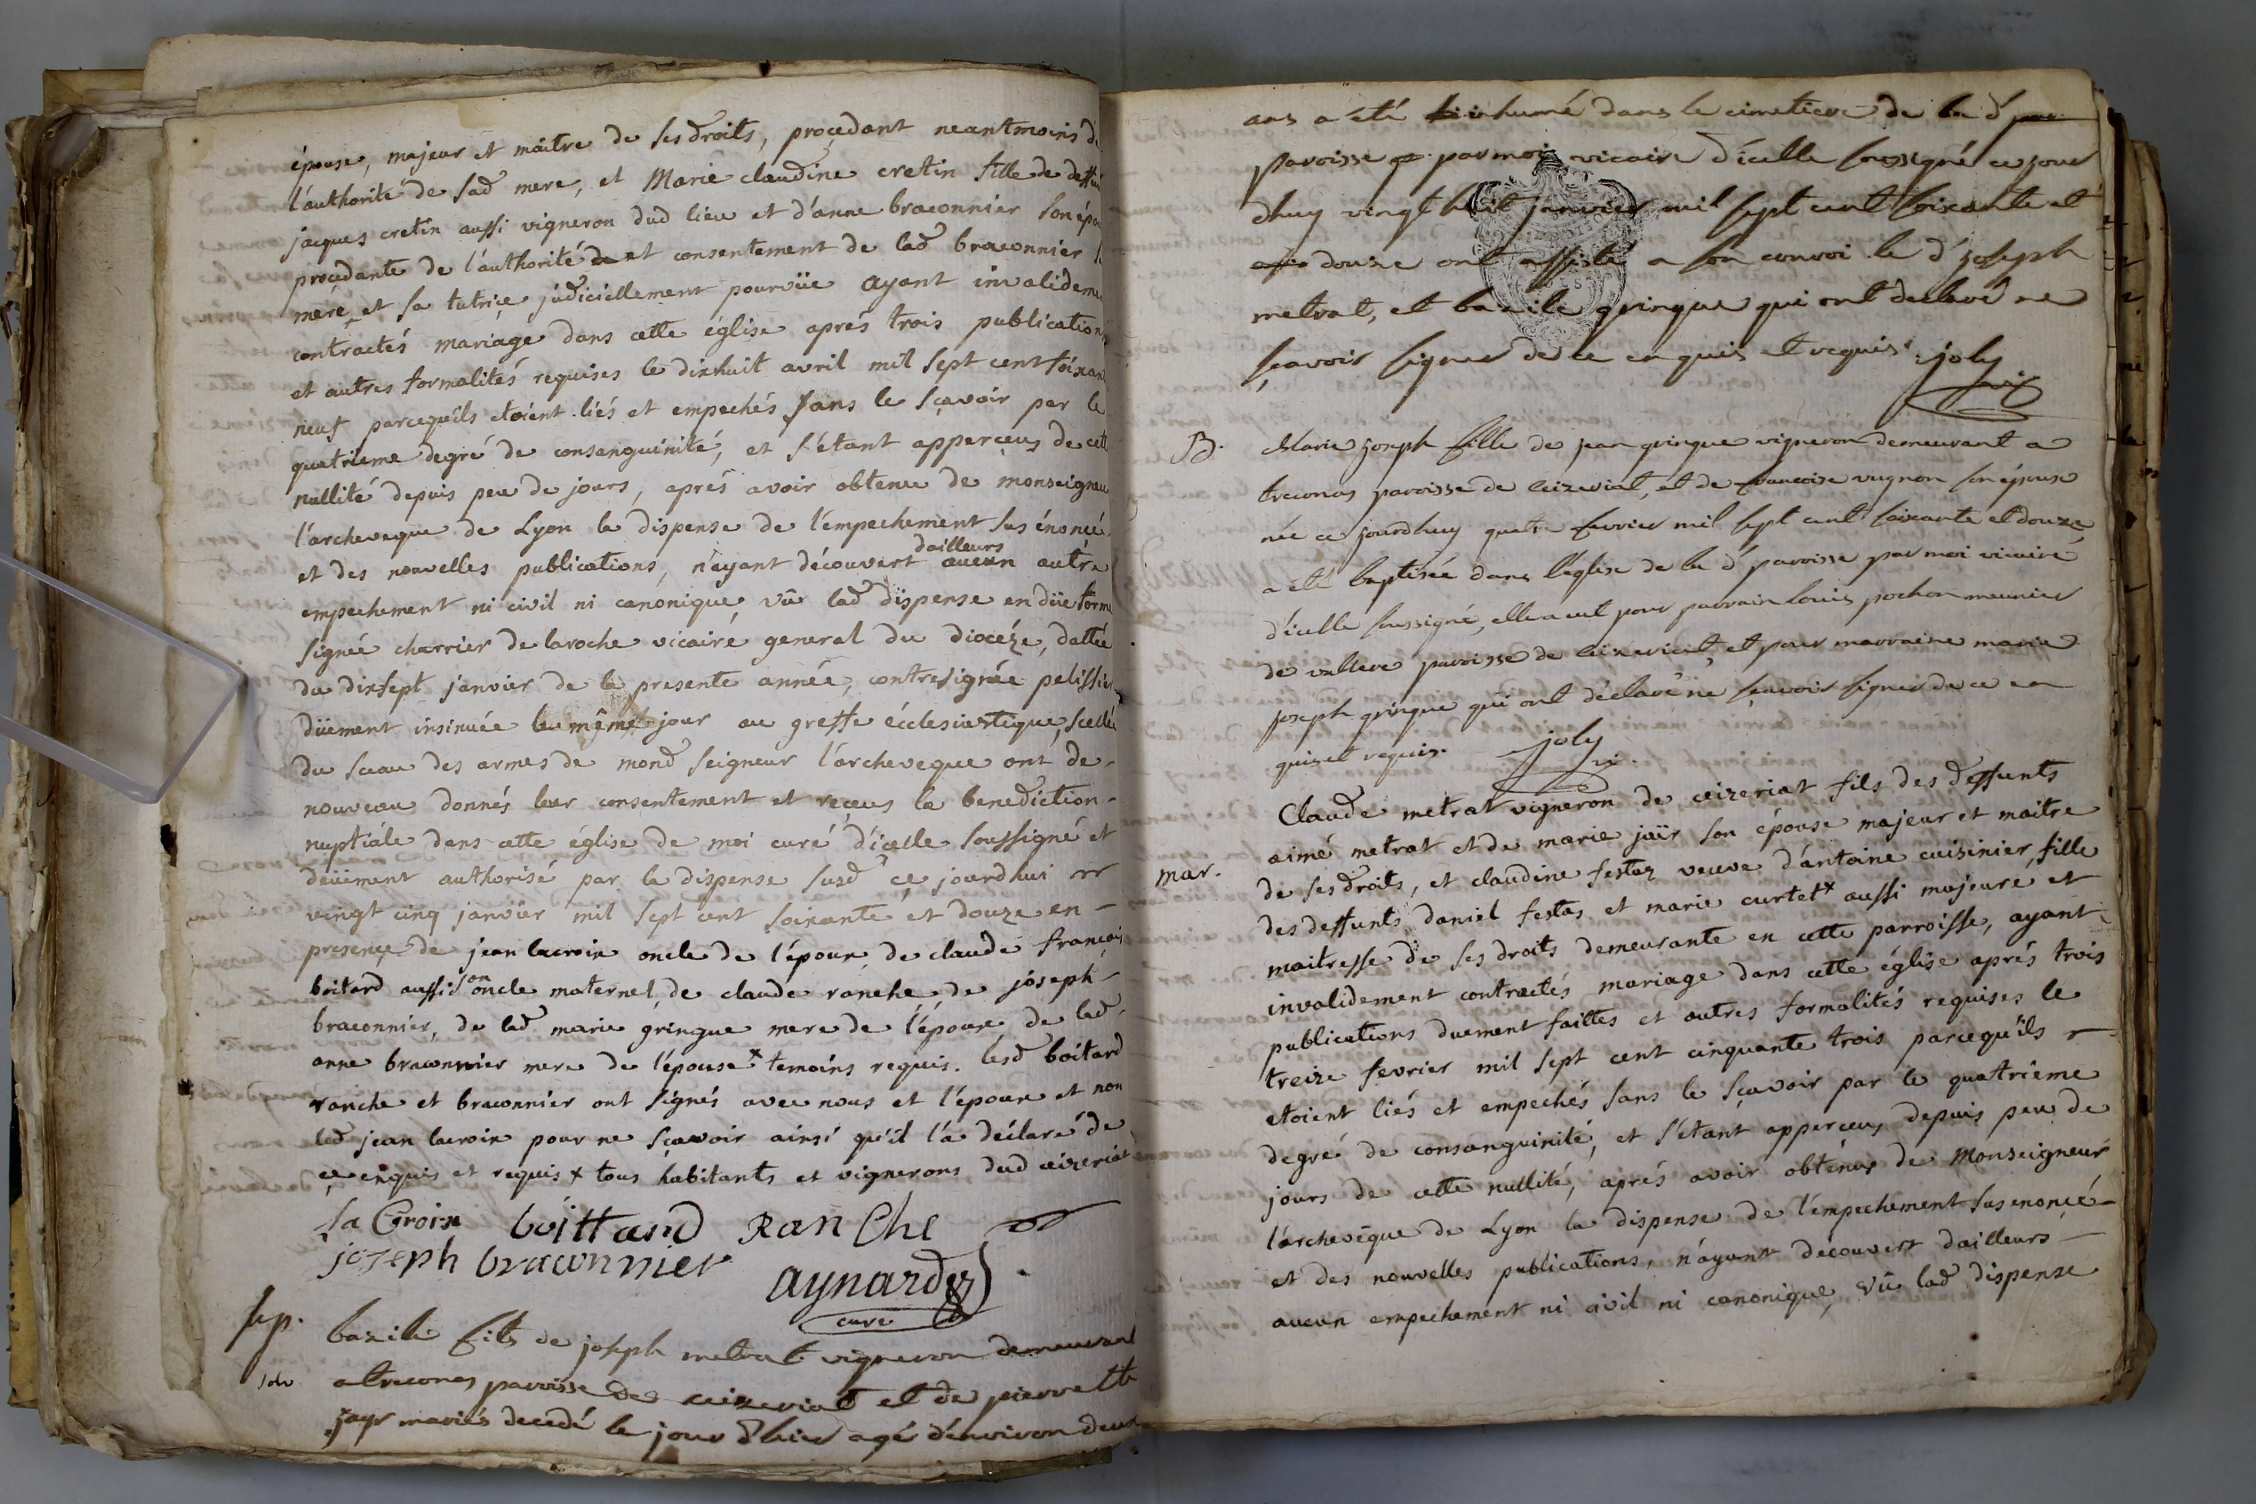 épouse, majeur et maitre de ses droits, procédant neantmoins de
l'authorité de sad mere, et Marie claudine cretin fille de deffunt
jacques cretin aussi vigneron dud lieu et d'anne braconnier son épou
procédante de l'authorité de et consentement de lad braconnier sa
mere et sa tutrice judiciellement pourvüe ayant invalideme
contractés mariage dans cette église aprés trois publications
et autres formalités requises le dixhuit avril mil sept cent soixan
neuf parcequils etoient liés et empechés sans le sçavoir par le
quatrieme degré de consanguinité, et s'étant apperceus de cette
nullité depuis peu de jours, aprés avoir obtenu de monseigneu
l'archeveque de Lyon la dispense de l'empechement sus énoncé
et des nouvelles publications, n'ayant découvert dailleurs aucun autre
empechement ni civil ni canonique, vû lad dispense en düe forme
signée charrier de laroche vicaire general du diocéze, dattée
du dixsept janvier de la presente année, contresignée pelissier
düement insinuée le même jour au greffe écclesiastique, scellée
du sceau des armes de mond seigneur l'archeveque ont de
nouveau donnés leur consentement et reçeus la benediction
nuptiale dans cette église de moi curé d'icelle soussigné et
deüement authorisé par la dispense susd ce jourdhui
vingt cinq janvier mil sept cent soixante et douze en
presence de jean lacroix oncle de l'époux de claude françois
boitard aussi son oncle maternel, de claude ranche de joseph
braconnier, de lad marie gringue mere de l'époux de lad
anne braconnier mere de l'épouse x temoins requis. lesd boitard
ranche et braconnier ont signés avec nous et l'époux et non
led jean lacroix pour ne sçavoir ainsi qu'il l'a déclaré de
ce enquis et requis x tous habitants et vignerons dud ceizeriat
La Croix boittard Ranche
joseph braconnier
aynard
curé
sep.
bazile fils de joseph metrat vigneron demeurant
a treconas paroisse de ceizeriat et de pierrette
jayr mariés decedé le jour d'hier agé d'environ deux
ans a été inhumé dans le cimetiere de la d
paroisse par moi vicaire d'icelle soussigné ce jour
dhuy vingt huit janvier mil sept cent soixante et
douze ont assisté a son convoi le d joseph
metrat, et bazile gringue qui ont declaré ne
sçavoir signer de ce enquis et requis. joly
vic
B.
Marie joseph fille de jean gringue vigneron demeurant a
treconas paroisse de ceizeriat, et de francoise vugnon son épouse
née ce jourdhuy quatre fevrier mil sept cent soixante et douze
a été baptisée dans l'église de la d paroisse par moi vicaire
d'icelle soussigné, elle a eut pour parrain louis pochon meunier
de valleve paroisse de ceizeriat, et pour marraine marie
joseph gringue qui ont déclaré ne sçavoir signer de ce en
quis et requis. joly
vic.
mar.
Claude metrat vigneron de ceizeriat fils des deffunts
aimé metrat et de marie jaïr son épouse majeur et maitre
de ses droits, et claudine festaz veuve d'antoine cuisinier, fille
des deffunts daniel festas et marie curtet x aussi majeure et
maitresse de ses droits demeurante en cette parroisse, ayant
invalidement contractés mariage dans cette église aprés trois
publications duement faittes et autres formalités requises le
treize fevrier mil sept cent cinquante trois parcequ'ils
etoient liés et empechés sans le sçavoir par le quatrieme
degré de consanguinité, et s'étant apperceus depuis peu de
jours de cette nullité, aprés avoir obtenus de Monseigneur
l'archevêque de Lyon la dispense de l'empechement sus enoncé
et des nouvelles publications, n'ayant découvert dailleurs
aucun empechement ni civil ni canonique, vû lad dispense